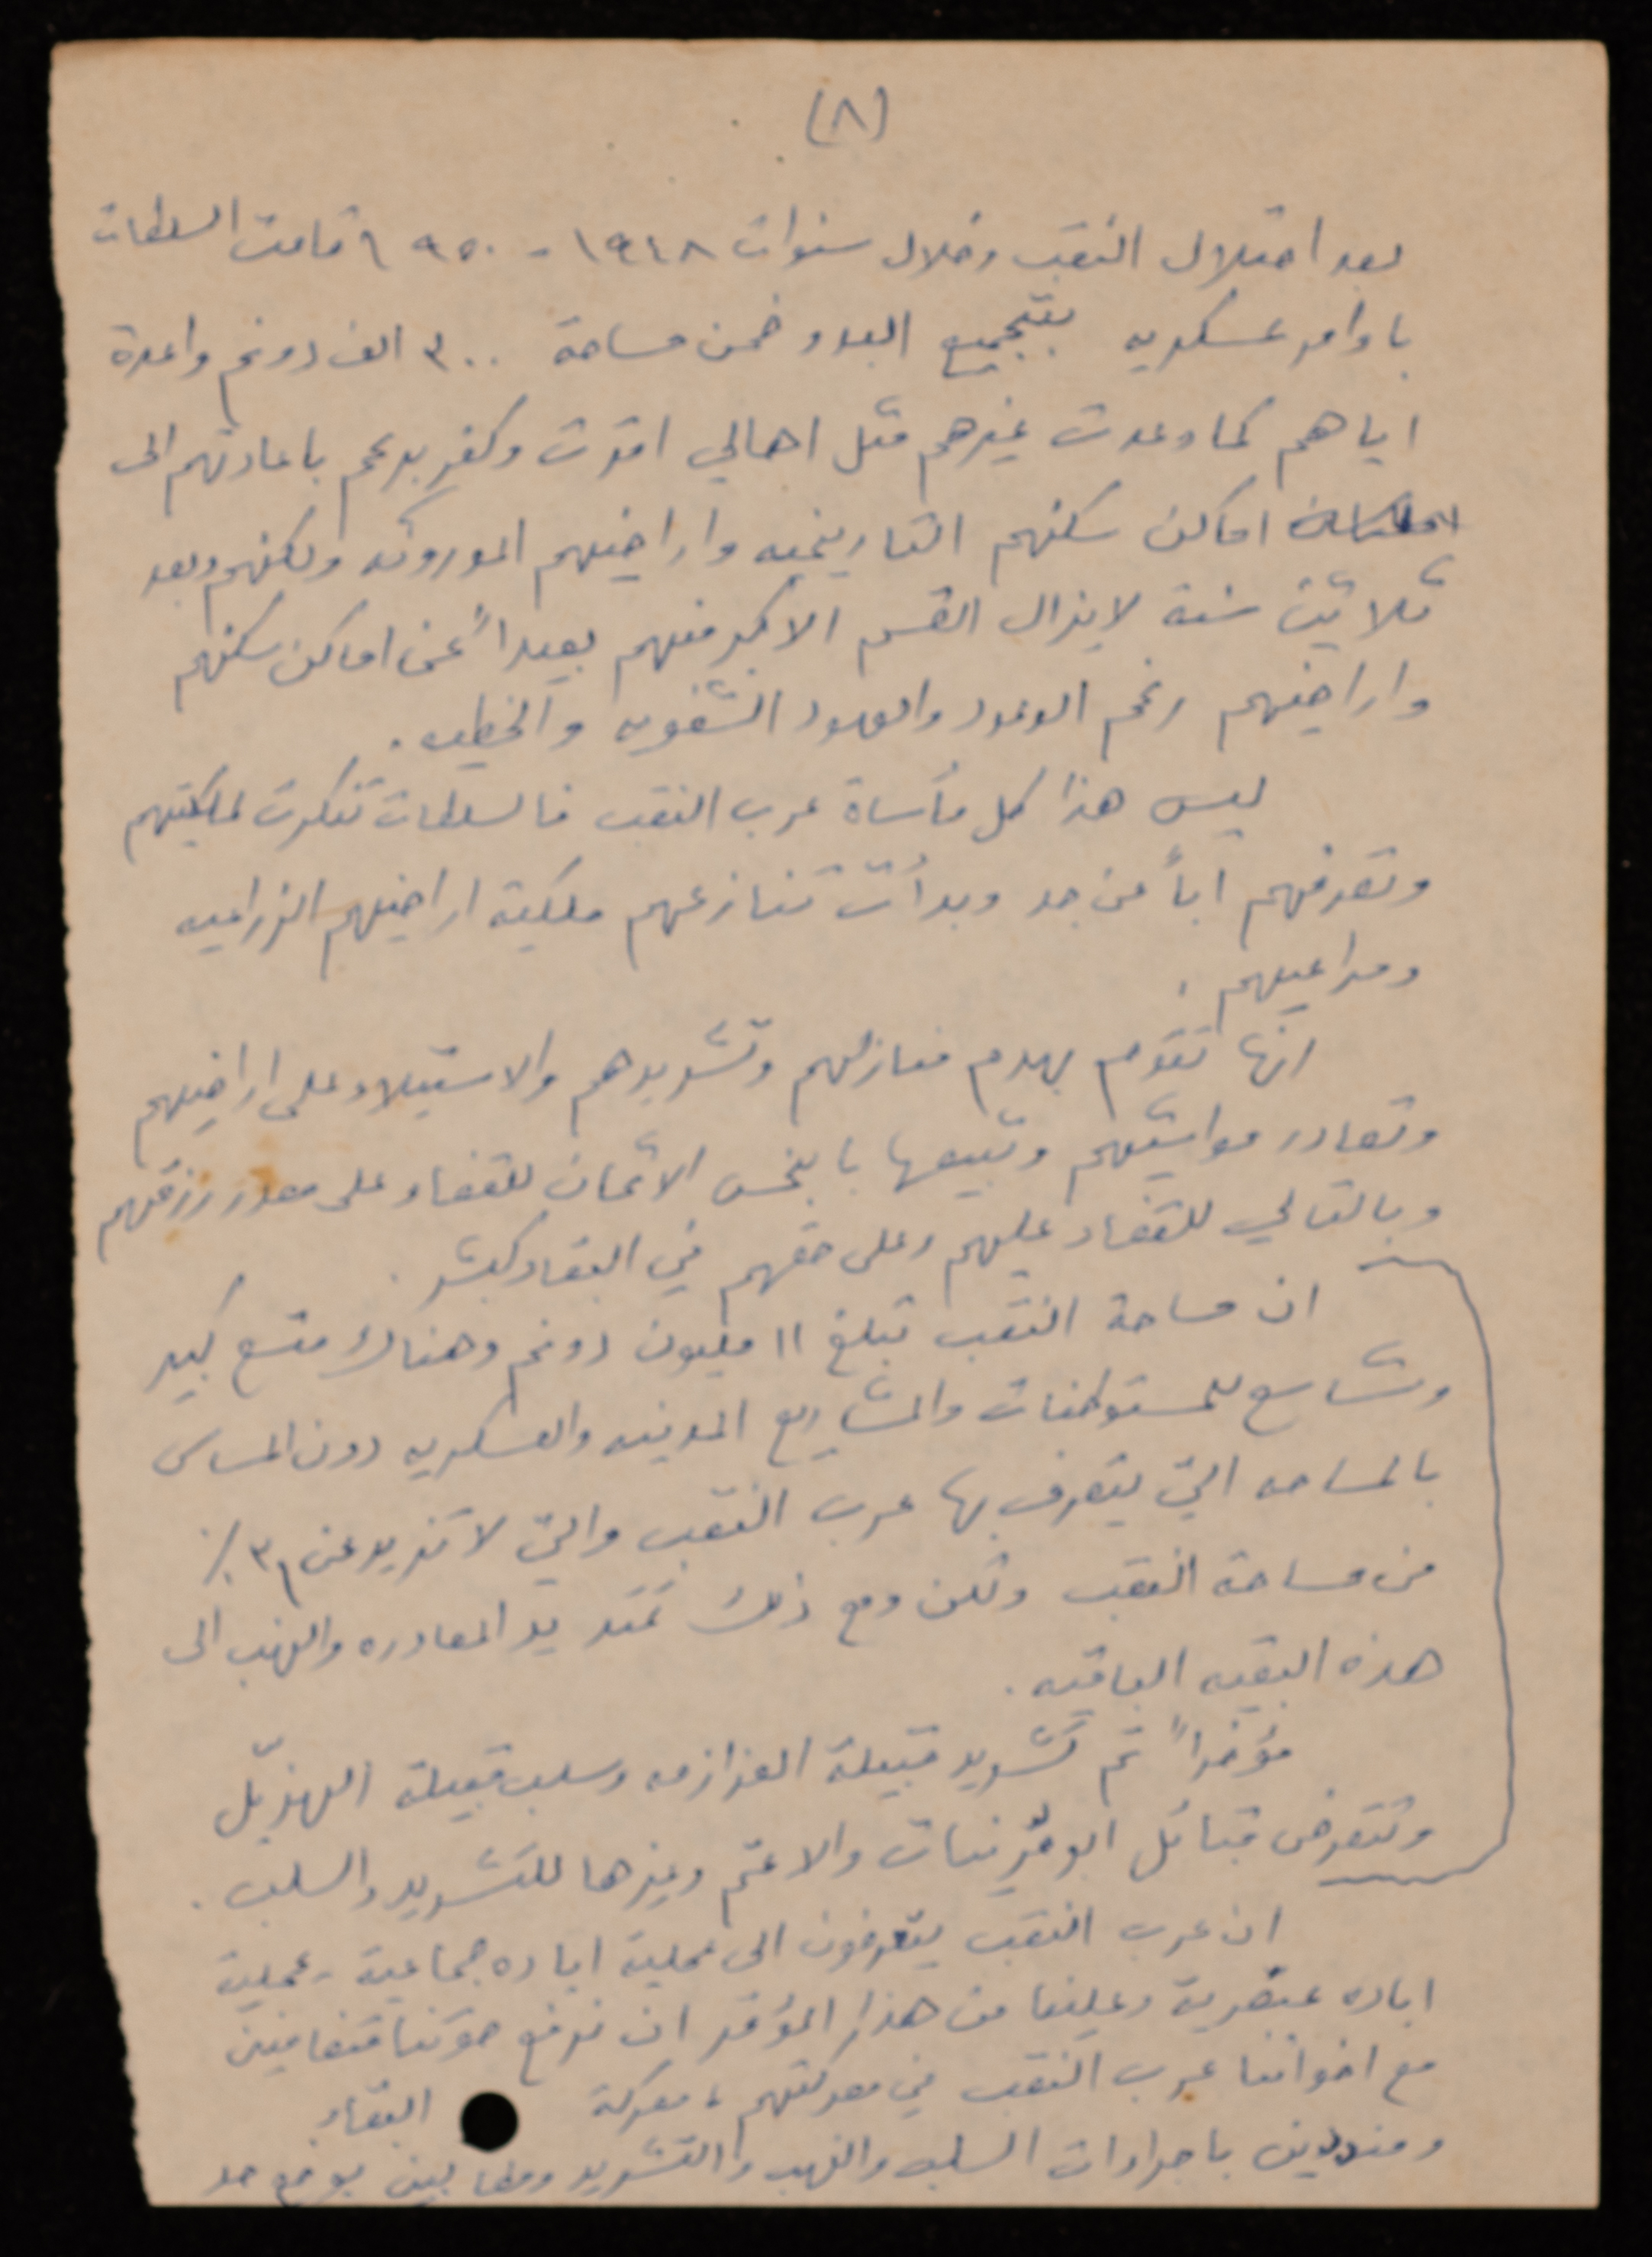 (٨)
بعد احتلال النقب وخلال سنوات ١٩٤٨ - ١٩٥٠ قامت السلطات
باوامر عسكريه بتجميع البدو ضمن مساحة ٣٠٠ الف دونم واعدة
اياهم كما وعدت غيرهم مثل اهالي اقرت وكفر برعم باعادتهم الى
اماكن سكنهم التاريخيه واراضيهم الموروثه ولكنهم وبعد
ثلاثين سنة لايزال القسم الاكبر منهم بعيداً عن اماكن سكنهم
واراضيهم رغم الوعود والعهود الشفويه والخطيه .
ليس هذا كل مأساة عرب النقب فالسلطات تنكرت لملكيتهم
وتصرفهم اباً عن جد وبدأت تنازعهم ملكية اراضيهم الزراعيه
ومراعيهم .
انها تقوم بهدم منازلهم وتشريدهم والاستيلاء على اراضيهم
وتصادر مواشيهم وتبيعها بابخس الاثمان للقضاء على مصدر رزقهم
وبالتالي للقضاء عليهم وعلى حقهم في البقاء كبشر .
ان مساحة النقب تبلغ ١١ مليون دونم وهناك متسع كبير
وشاسع للمستوطنات والمشاريع المدنيه والعسكريه دون المساس
بالمساحه التي يتصرف بها عرب النقب والتي لا تزيد عن ٣٪
من مساحة النقب ولكن ومع ذلك تمتد يد المصادره والنهب الى
هذه البقيه الباقيه .
مؤخراً تم تشريد قبيلة العزازمه وسلب قبيلة الهزيّل
وتتعرض قبائل ابو قرينات والاعسم وغيرها للتشريد والسلب .
ان عرب النقب يتعرضون الى عملية اباده جماعية - عملية
اباده عنصرية وعلينا من هذا المؤتمر ان نرفع صوتنا متضامنين
مع اخواننا عرب النقب في معركتهم ، معركة البقاء
ومنددين باجراءات السلب والنهب والتشريد ومطالبين بوضع حد